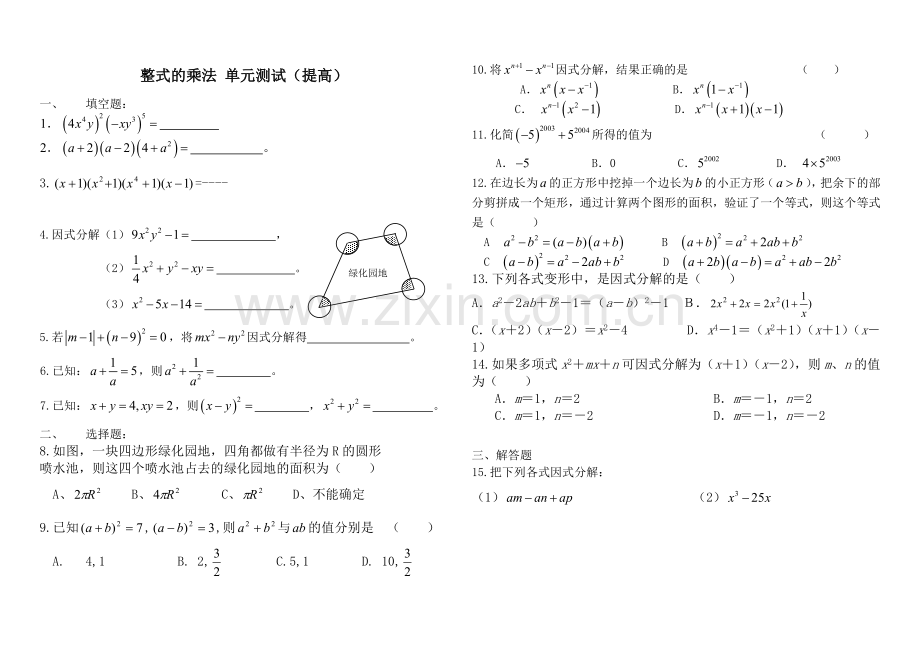 整式的乘法 单元测试（提高）
一、 填空题:
1. (4x⁴y)²(−xy³)⁵= ________
2. (a+2)(a−2)(4+a²)= ________。
3.(x+1)(x²+1)(x⁴+1)(x−1)=----
4.因式分解（1）9x²y²−1= ________，
（2）1/4 x²+y²−xy= ________。
绿化园地
（3）x²−5x−14= ________。
5.若|m−1|+(n−9)²=0，将mx²−ny²因式分解得________。
6.已知: a+1/a=5，则a²+1/a²= ________。
7.已知: x+y=4,xy=2，则(x−y)²= ________，x²+y²= ________。
二、 选择题:
8.如图，一块四边形绿化园地，四角都做有半径为R的圆形
喷水池，则这四个喷水池占去的绿化园地的面积为（ ）
A、2πR² B、4πR² C、πR² D、不能确定
9.已知(a+b)²=7,(a−b)²=3,则a²+b²与ab的值分别是 （ ）
A. 4,1 B. 2,3/2 C.5,1 D. 10,3/2
10.将xⁿ⁺¹−xⁿ⁻¹因式分解，结果正确的是 （ ）
A．xⁿ(x−x⁻¹) B．xⁿ(1−x⁻¹)
C． xⁿ⁻¹(x²−1) D．xⁿ⁻¹(x+1)(x−1)
11.化简(−5)²⁰⁰³+5²⁰⁰⁴所得的值为 （ ）
A．−5 B．0 C．5²⁰⁰² D． 4×5²⁰⁰³
12.在边长为a的正方形中挖掉一个边长为b的小正方形（a>b），把余下的部
分剪拼成一个矩形，通过计算两个图形的面积，验证了一个等式，则这个等式
是（ ）
A a²−b²=(a−b)(a+b) B (a+b)²=a²+2ab+b²
C (a−b)²=a²−2ab+b² D (a+2b)(a−b)=a²+ab−2b²
13.下列各式变形中，是因式分解的是（ ）
A．a²－2ab＋b²－1＝（a－b）²－1 B．2x²+2x=2x²(1+1/x)
C．（x＋2）（x－2）＝x²－4 D．x⁴－1＝（x²＋1）（x＋1）（x－
1）
14.如果多项式x²＋mx＋n可因式分解为（x＋1）（x－2），则m、n的值
为（ ）
A．m＝1，n＝2 B．m＝－1，n＝2
C．m＝1，n＝－2 D．m＝－1，n＝－2
三、解答题
15.把下列各式因式分解:
（1）am−an+ap （2）x³−25x
www.zixin.com.cn